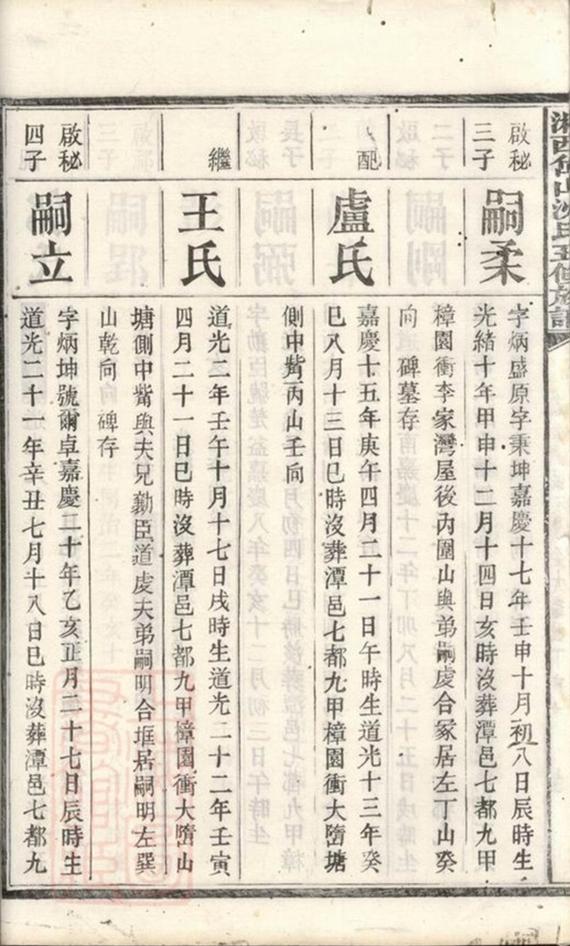 啟秘
三子
嗣柔
字炳盛原字秉坤嘉慶十七年壬申十月初八日辰時生
光緒十年甲申十二月十四日亥時沒葬潭邑七都九甲
樟園衝李家灣屋後內圍山與弟嗣虔合冢居左丁山癸
向 碑墓存
配
盧氏
嘉慶十五年庚午四月二十一日午時生道光十三年癸
巳八月十三日巳時沒葬潭邑七都九甲樟園衝大䃥塘
側中觜丙山壬向
繼
王氏
道光二年壬午十月十七日戌時生道光二十二年壬寅
四月二十一日巳時沒葬潭邑七都九甲樟園衝大䃥山
塘側中觜與夫兄勷臣道虔夫弟嗣明合堆居嗣明左巽
山乾向 碑存
啟秘
四子
嗣立
字炳坤號爾卓嘉慶二十年乙亥正月二十七日辰時生
道光二十一年辛丑七月十八日巳時沒葬潭邑七都九